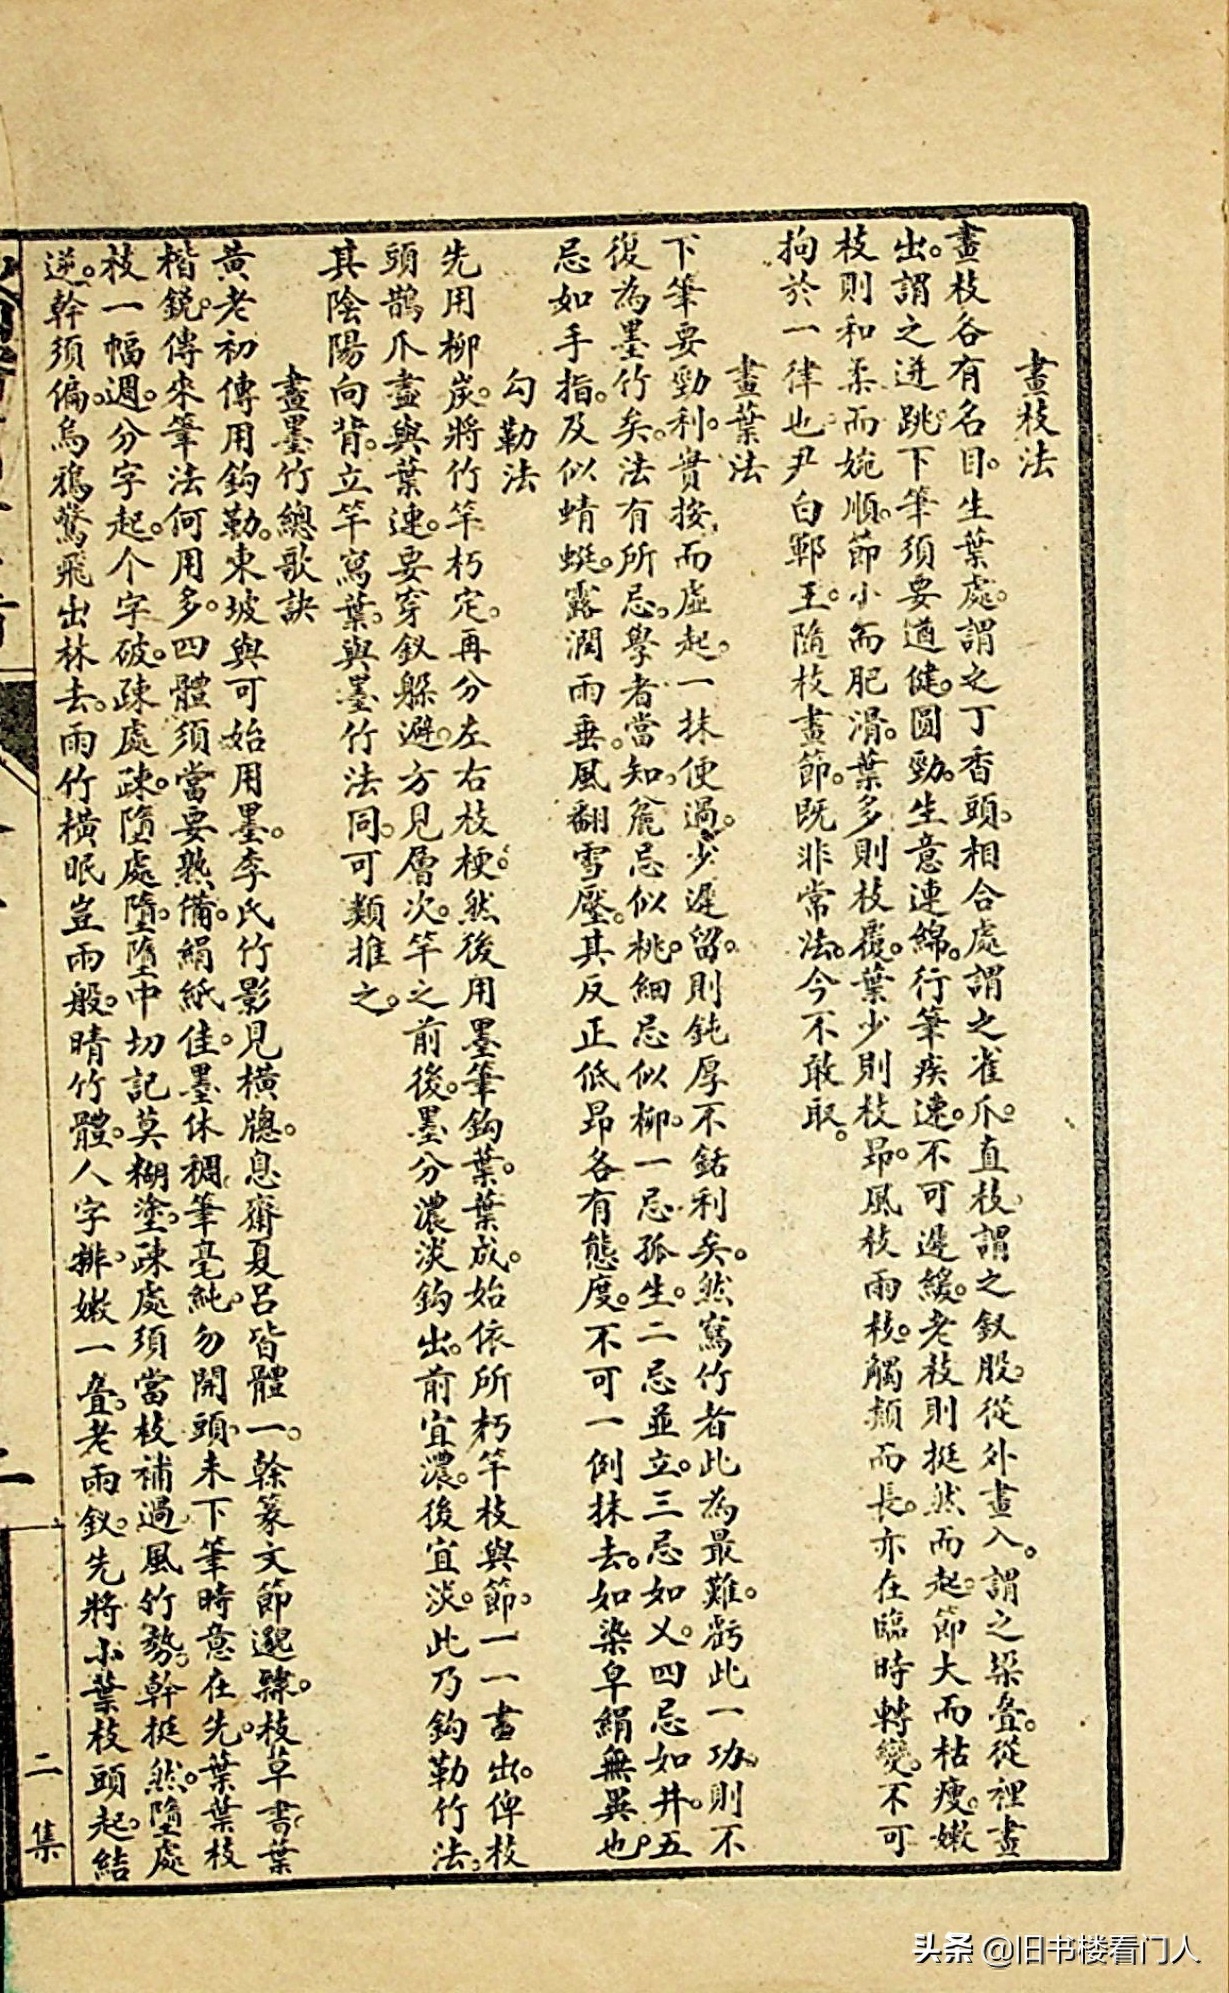 畫枝法
畫枝各有名目。生葉處。謂之丁香頭。相合處謂之雀爪。直枝謂之釵股。從外畫入。謂之垜疊。從裡畫
出。謂之迸跳。下筆須要遒健。圓勁。生意連綿。行筆疾速。不可遲緩。老枝則挺然而起。節大而枯瘦。嫩
枝則和柔而婉順。節小而肥滑。葉多則枝覆。葉少則枝昂。風枝雨枝。觸類而長。亦在臨時轉變。不可
拘於一律也。尹白鄆王。隨枝畫節。既非常法。今不敢取。
畫葉法
下筆要勁利。實按而虛起。一抹便過。少遲留。則鈍厚不銛利矣。然寫竹者此為最難。虧此一功。則不
復為墨竹矣。法有所忌。學者當知。麄忌似桃。細忌似柳。一忌孤生。二忌並立。三忌如乂。四忌如井。五
忌如手指。及似蜻蜓。露潤雨垂。風翻雪壓。其反正低昂各有態度。不可一例抹去。如染皁絹無異也。
勾勒法
先用柳炭。將竹竿朽定。再分左右枝梗。然後用墨筆鈎葉。葉成。始依所朽竿枝與節。一一畫出。俾枝
頭鵲爪盡與葉連。要穿釵躲避。方見層次。竿之前後。墨分濃淡鈎出。前宜濃。後宜淡。此乃鈎勒竹法。
其陰陽向背。立竿寫葉。與墨竹法同。可類推之。
畫墨竹總歌訣
黃老初傳用鈎勒。東坡與可始用墨。李氏竹影見橫牕。息齋夏呂皆體一。榦篆文節邈隸。枝草書葉
楷銳。傳來筆法何用多。四體須當要熟備。絹紙佳。墨休稠。筆毫純。勿開頭。未下筆時意在先。葉葉枝
枝一幅週。分字起。个字破。疎處疎。墮處墮。墮中切記莫糊塗。疎處須當枝補過。風竹勢。幹挺然。墮處
逆。幹須偏。烏鴉驚飛出林去。雨竹橫眠豈兩般。晴竹體。人字排。嫩一疊。老兩釵。先將小葉枝頭起。結
二集
头条 @旧书楼看门人